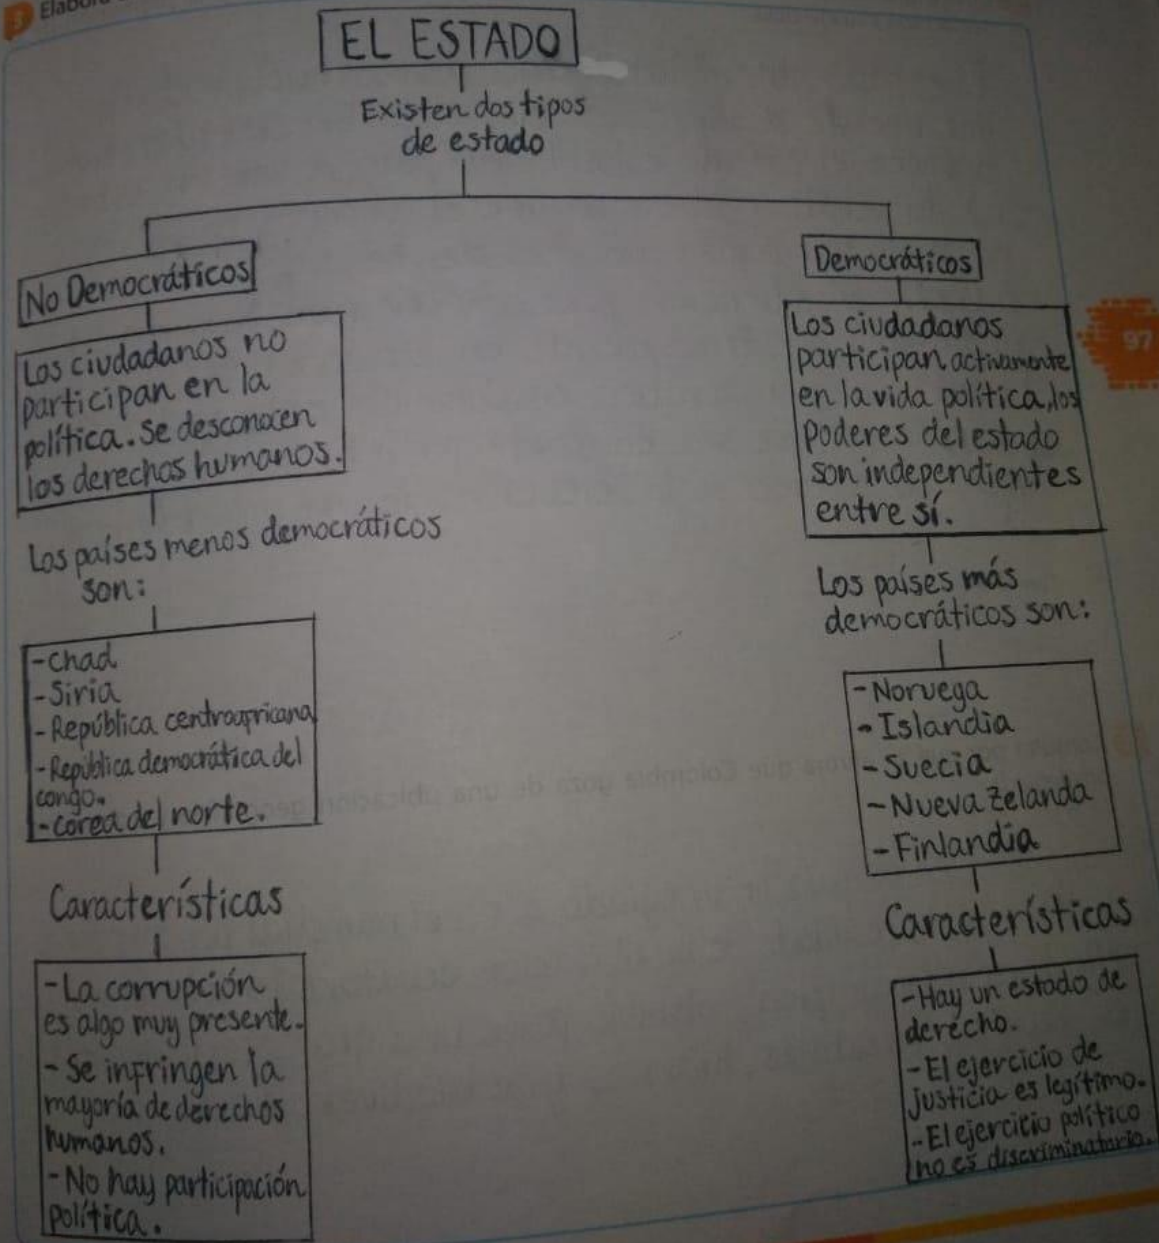 3 Elabora
EL ESTADO
Existen dos tipos
de estado
No Democráticos
Los ciudadanos no
participan en la
política. Se desconocen
los derechos humanos.
Los países menos democráticos
son:
-Chad
-Siria
-República centroafricana
-República democrática del
congo.
-corea del norte.
Características
-La corrupción
es algo muy presente.
-Se infringen la
mayoría de derechos
humanos.
-No hay participación
política.
Democráticos
Los ciudadanos
participan activamente
en la vida política, los
poderes del estado
son independientes
entre sí.
Los países más
democráticos son:
-Noruega
-Islandia
-Suecia
-Nueva Zelanda
-Finlandia
Características
-Hay un estado de
derecho.
-El ejercicio de
justicia es legítimo.
-El ejercicio político
no es discriminatorio.
97
que Colombia goza de una ubicación